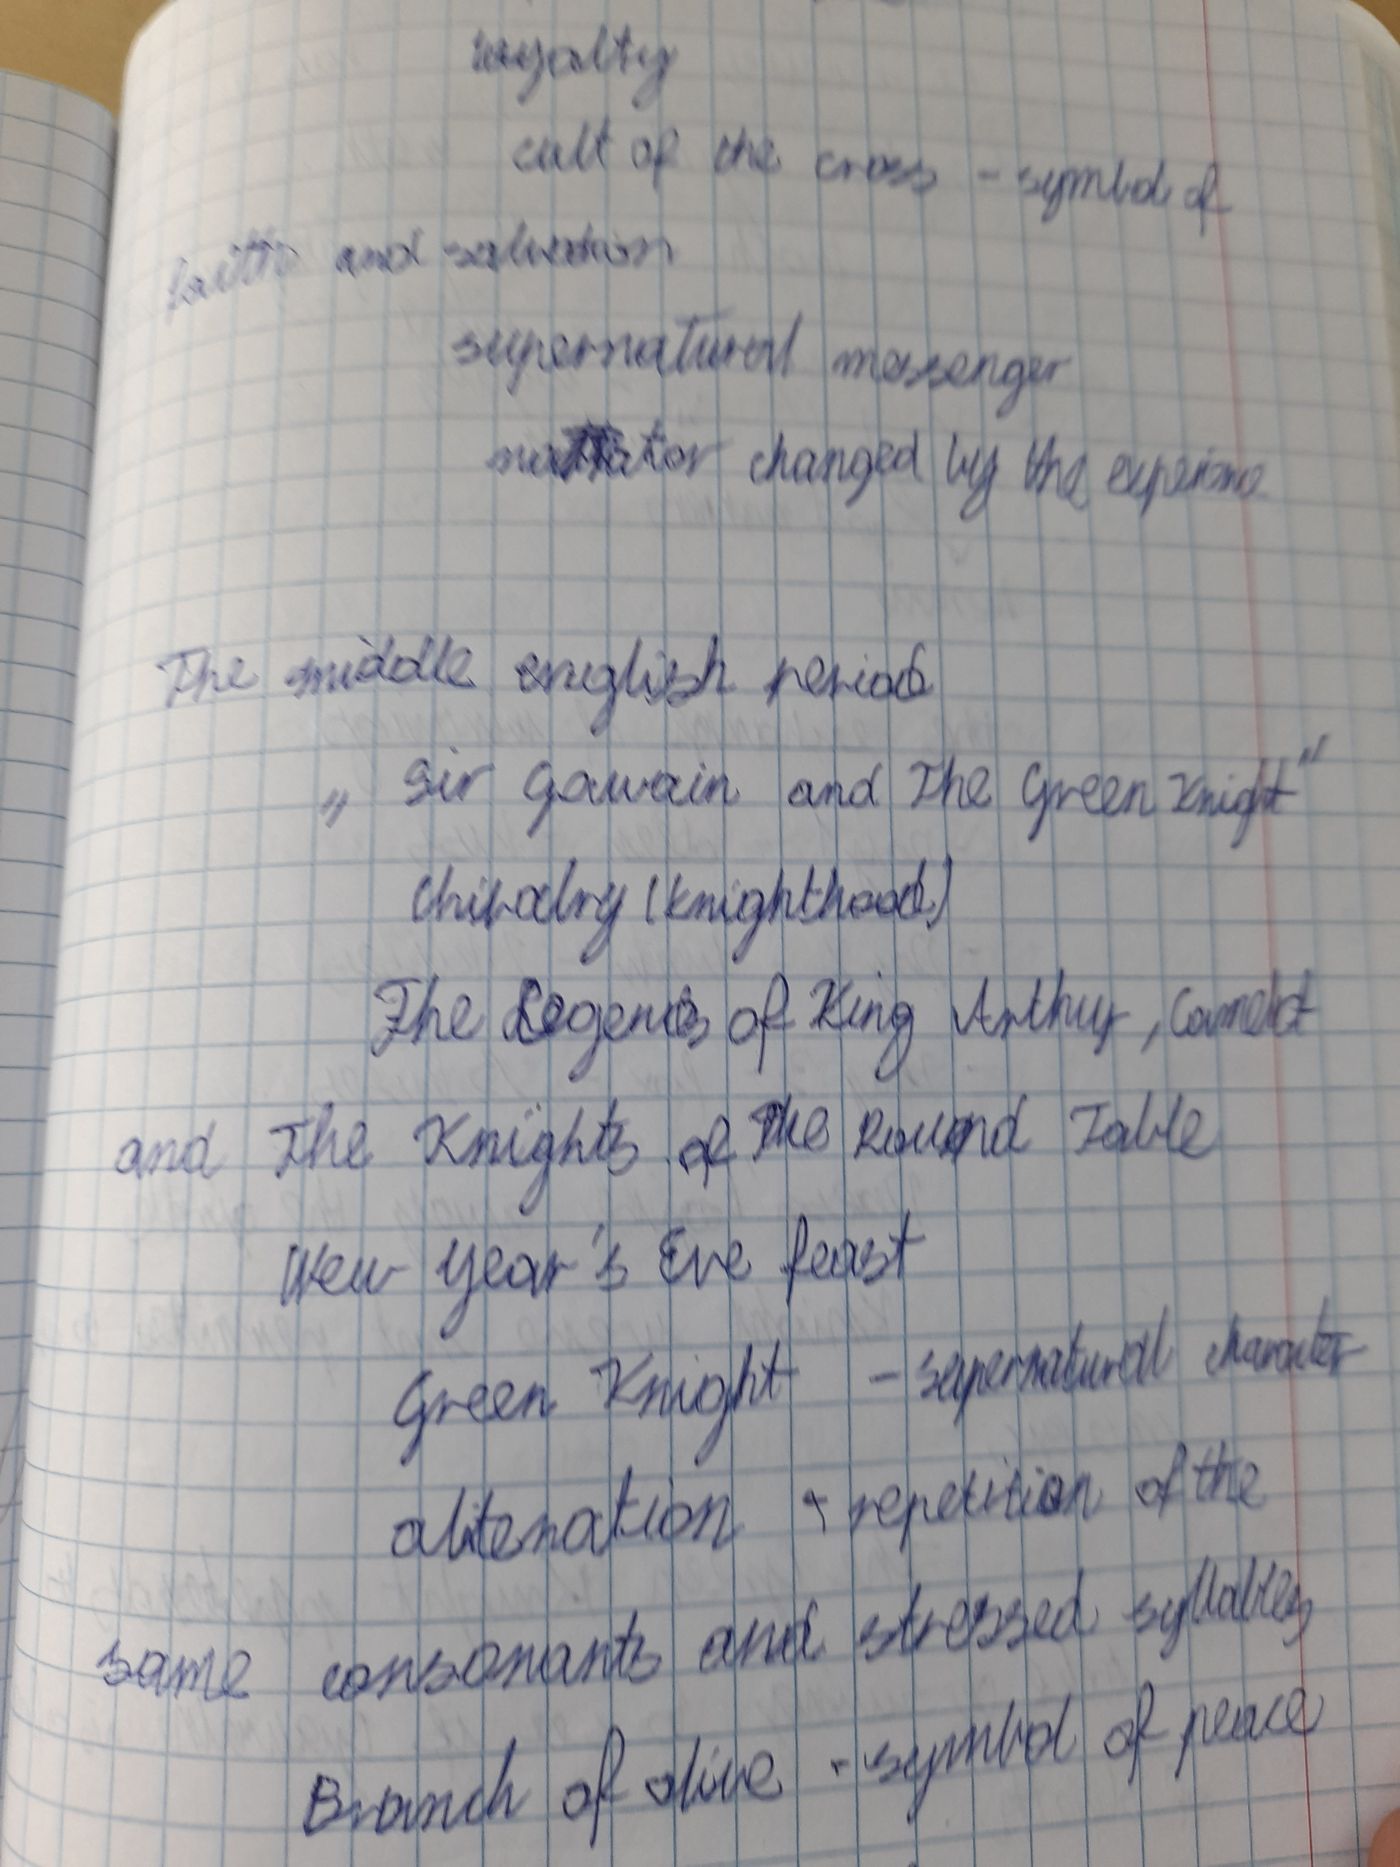 loyalty
cult of the cross - symbol of
faith and salvation
supernatural messenger
narrator changed by the experience
The middle english period
„ Sir Gawain and The Green Knight"
Chivalry (knighthood)
The Legends of King Arthur, Camelot
and The Knights of The Round Table
New Year's Eve feast
Green Knight - supernatural character
aliteration - repetition of the
same consonants and stressed syllables
Branch of olive - symbol of peace